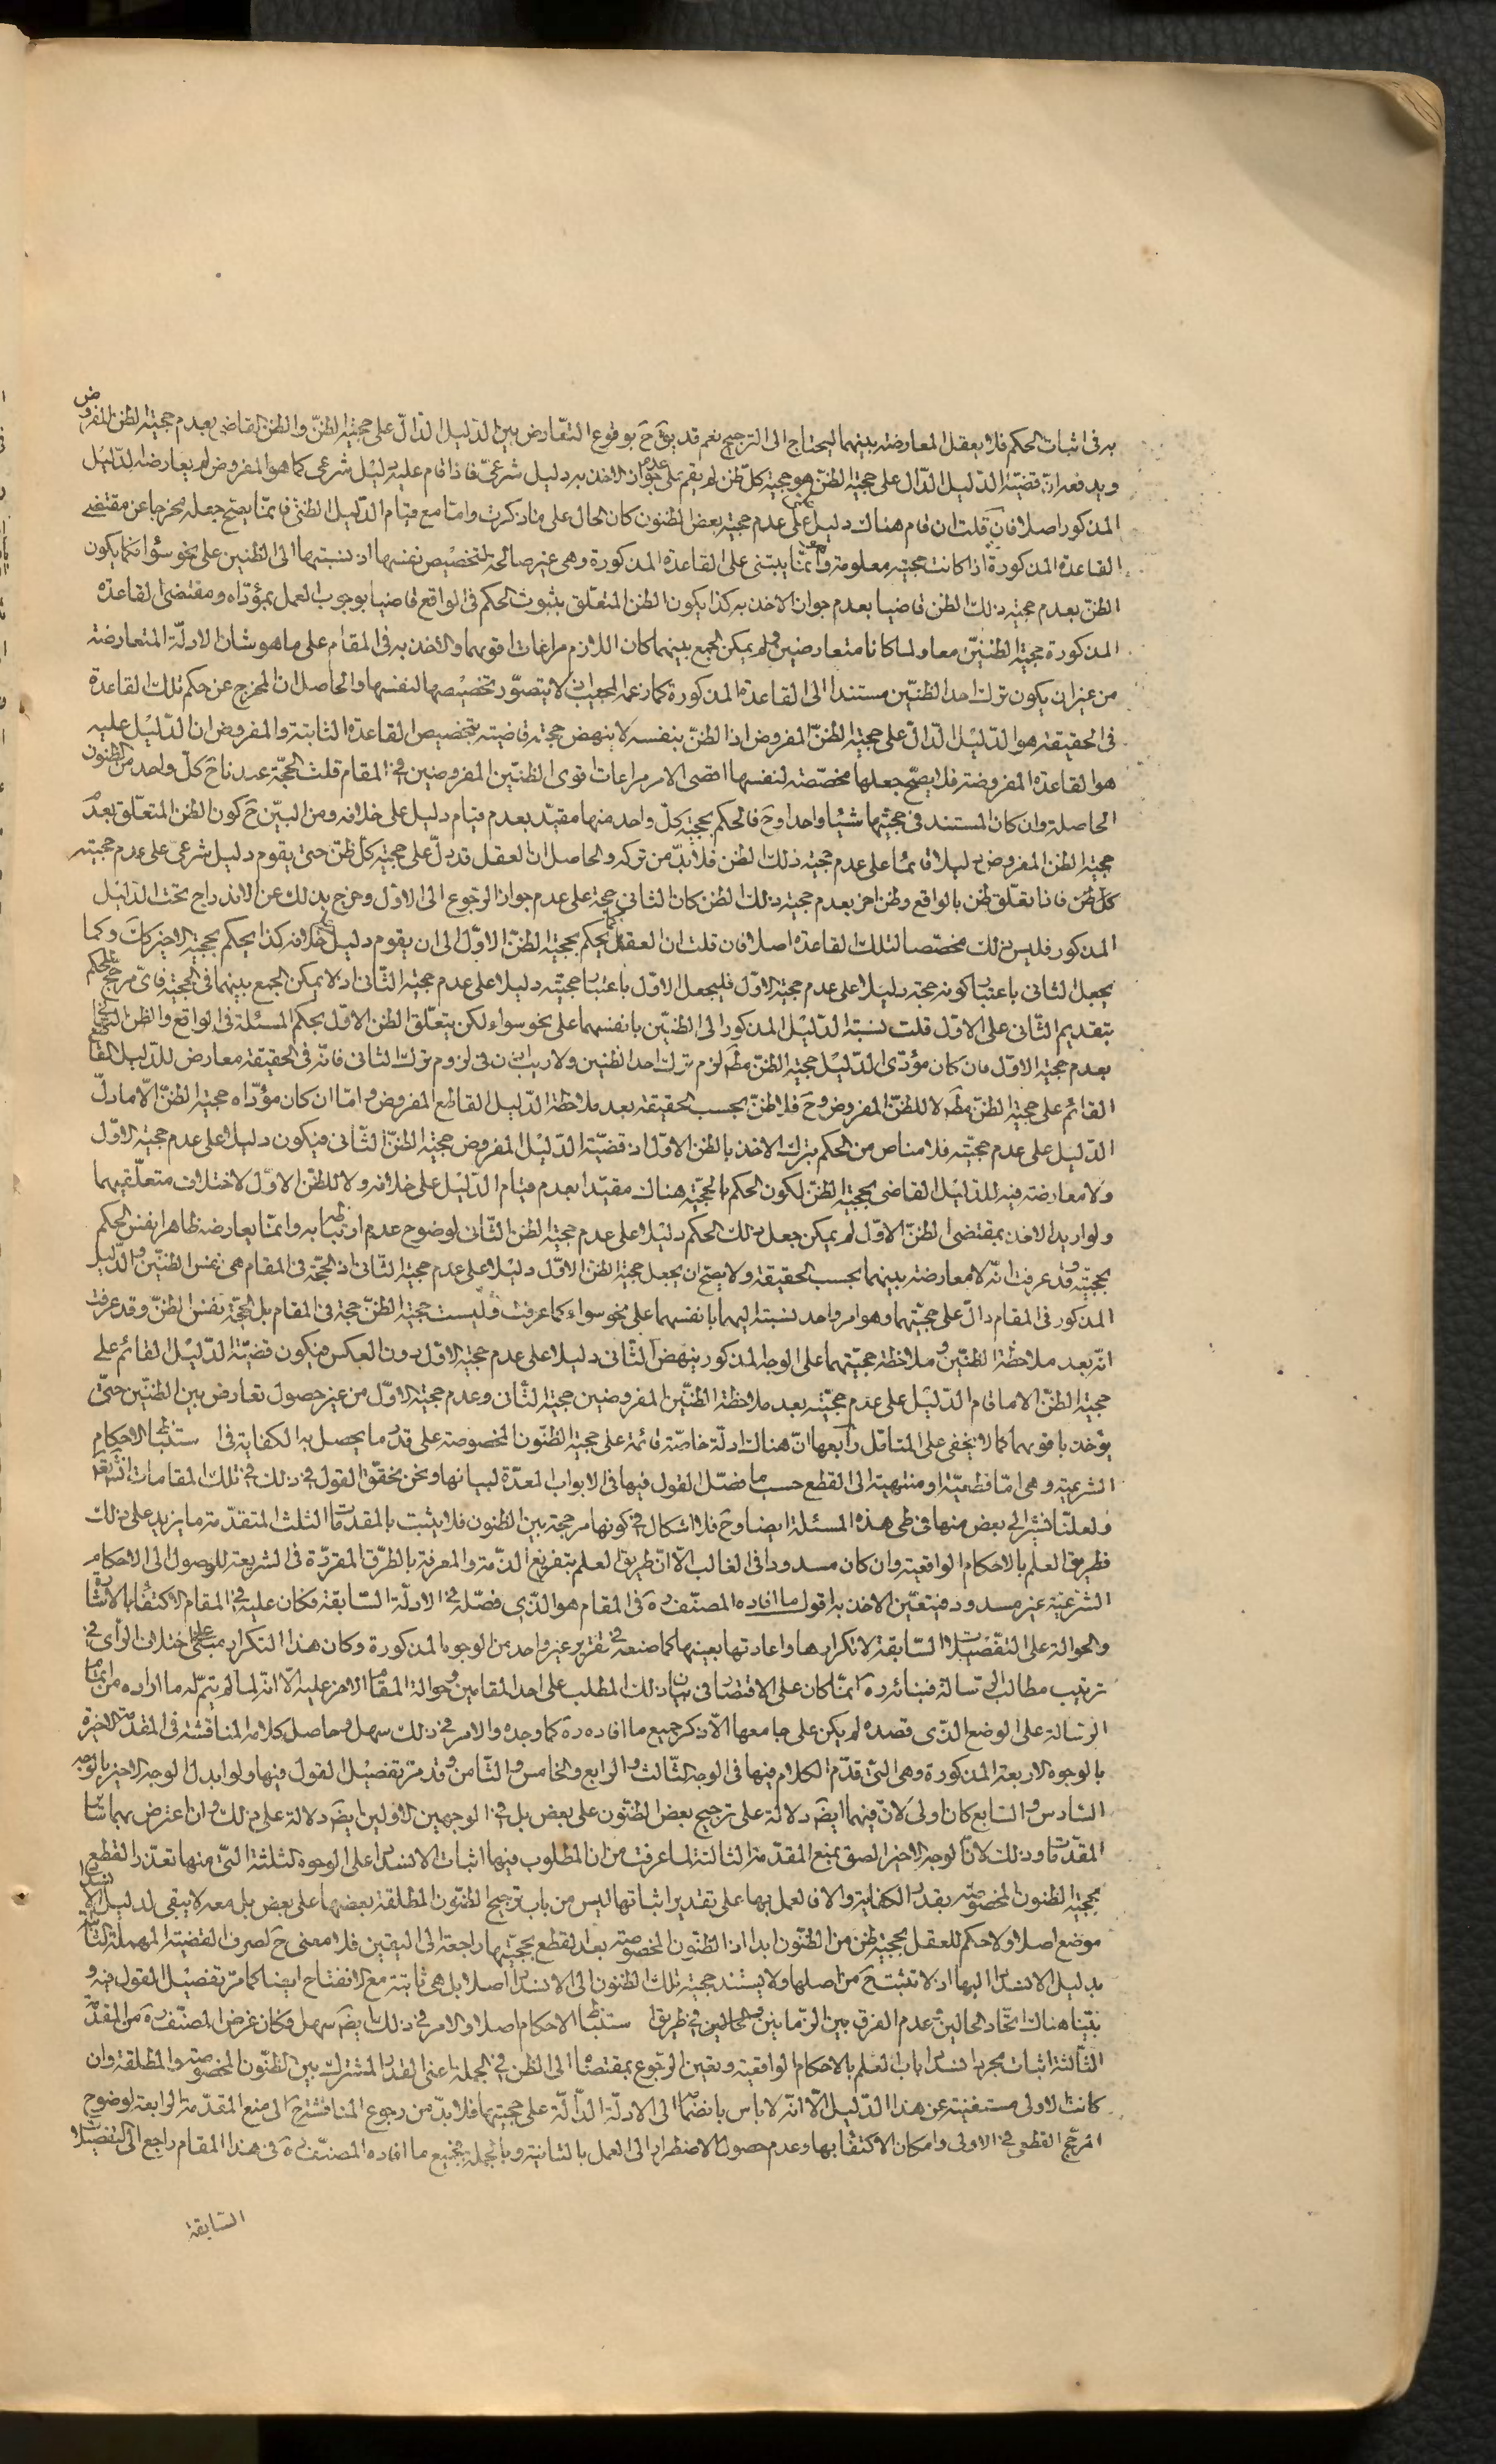 به في اثبات الحكم فلا يعقل المعارضة بينهما ليحتاج الى الترجيح نعم قد يق ح بوقوع التّعارض بين الدّليل الدّالّ على حجيّة الظنّ والظن القاضي بعدم حجيّة الظن المفروض
ويدفعه انّ قضيّة الدّليل الدّال على حجيّة الظنّ هو حجيّة كلّ ظن لم يقم على عدم جواز الاخذ به دليل شرعيّ فاذا قام عليه دليل شرعي كما هو المفروض لم يعارضه الدّليل
المذكور اصلا فان قلت ان قام هناك دليل علمي على عدم حجيّة بعض الظنون كان الحال على ما ذكرت وامّا مع قيام الدّليل الظنّي فانّما يصحّ جعله مخرجا عن مقتضى
القاعدة المذكورة اذا كانت حجيّته معلومة وهو انّما يبتني على القاعدة المذكورة وهي غير صالحة لتخصيص نفسها اذ نسبتها الى الظنّين على نحو سواء فكما يكون
الظنّ بعدم حجيّة ذلك الظن قاضيا بعدم جواز الاخذ به كذا يكون الظن المتعلّق بثبوت الحكم في الواقع قاضيا بوجوب العمل بمؤدّاه ومقتضى القاعدة
المذكورة حجيّة الظنّين معا ولما كانا متعارضين ولم يمكن الجمع بينهما كان اللازم مراعات اقويهما والاخذ به في المقام على ما هو شان الادلّة المتعارضة
من غير ان يكون ترك احد الظنّين مستندا الى القاعدة المذكورة كما زعمه المجيب اذ لا يتصوّر تخصيصها لنفسها والحاصل ان المخرج عن حكم تلك القاعدة
في الحقيقة هو الدّليل الدّالّ على حجيّة الظنّ المفروض اذ الظنّ بنفسه لا ينهض حجّة قاضية بتخصيص القاعدة الثّابتة والمفروض ان الدّليل عليه
هو القاعدة المفروضة فلا يصحّ جعلها مخصّصة لنفسها اقصى الامر مراعات اقوى الظنّين المفروضين في المقام قلت الحجّة عندنا ح كلّ واحد من الظنون
الحاصلة وان كان المستند في حجيّتها شيئا واحدا وح فالحكم بحجيّة كلّ واحد منها مقيّد بعدم قيام دليل على خلافه ومن البيّن ح كون الظن المتعلّق بعدم
حجيّة الظن المفروض دليلا قائما على عدم حجيّة ذلك الظن فلا بدّ من تركه والحاصل انّ العقل قد دلّ على حجيّة كلّ ظنّ حتى يقوم دليل شرعيّ على عدم حجيّته
كل ظن فاذا تعلّق ظن بالواقع وظن اخر بعدم حجيّة ذلك الظن كان الثاني حجّة على عدم جواز الرّجوع الى الاوّل وخرج بذلك عن الاندراج تحت الدّليل
المذكور فليس ذلك مخصّصا لتلك القاعدة اصلا فان قلت ان العقل كما يحكم بحجيّة الظنّ الاوّل الى ان يقوم دليل على خلافه كذا يحكم بحجيّة الاخير كك وكما
يجعل الثاني باعتبار كونه حجّة دليلا على عدم حجيّة الاوّل فليجعل الاوّل باعتبار حجيّته دليلا على عدم حجيّة الثّاني اذ لا يمكن الجمع بينهما في الحجيّة فايّ مرجّح للحكم
بتقديم الثّاني على الاوّل قلت نسبة الدّليل المذكور الى الظنّين بانفسهما على نحو سواء لكن يتعلّق الظن الاوّل بحكم المسئلة في الواقع والظن الثاني
بعدم حجيّة الاوّل فان كان مؤدّى الدّليل حجيّة الظنّ مطم لزم ترك احد الظنّين ولا ريب اذن في لزوم ترك الثاني فانّه في الحقيقة معارض للدّليل القاطع
القائم على حجيّة الظنّ مطم لا للظنّ المفروض وح فلا ظنّ بحسب الحقيقة بعد ملاحظة الدّليل القاطع المفروض وامّا ان كان مؤدّاه حجيّة الظنّ الّا ما دلّ
الدّليل على عدم حجيّته فلا مناص من الحكم بترك الاخذ بالظن الاوّل اذ قضيّة الدّليل المفروض حجيّة الظنّ الثّاني فيكون دليلا على عدم حجيّة الاوّل
ولا معارضة فيه للدّليل القاضي بحجيّة الظنّ لكون الحكم بالحجيّة هناك مقيّدا بعدم قيام الدّليل على خلافه ولا للظن الاوّل لاختلاف متعلّقيهما
ولو اريد الاخذ بمقتضى الظنّ الاوّل لم يمكن جعل ذلك الحكم دليلا على عدم حجيّة الظن الثّاني لوضوح عدم ارتباطه به وانّما يعارضه ظاهرا نفس الحكم
بحجيّته وقد عرفت انّه لا معارضة بينهما بحسب الحقيقة ولا يصحّ ان يجعل حجيّة الظن الاوّل دليلا على عدم حجيّة الثّاني اذ الحجّة في المقام هي نفس الظنّين والدّليل
المذكور في المقام دالّ على حجيّتهما وهو امر واحد نسبته اليهما بانفسهما على نحو سواء كما عرفت وليست حجيّة الظنّ حجّة في المقام بل الحجّة نفس الظنّ وقد عرفت
انّه بعد ملاحظة الظنّين وملاحظة حجيّتهما على الوجه المذكور ينهض الثّاني دليلا على عدم حجيّة الاوّل دون العكس فيكون قضيّة الدّليل القائم على
حجيّة الظنّ الّا ما قام الدّليل على عدم حجيّته بعد ملاحظة الظنّين المفروضين حجيّة الثّاني وعدم حجيّة الاوّل من غير حصول تعارض بين الظنّين حتى
يؤخذ باقويهما كما لا يخفى على المتامّل رابعها انّ هناك ادلّة خاصّة قائمة على حجيّة الظنون المخصوصة على قدر ما يحصل به الكفاية في استنباط الاحكام
الشرعيّة وهي امّا قطعيّة او منتهية الى القطع حسب ما فصّل القول فيها في الابواب المعدّة لبيانها ونحن نحقّق القول في ذلك في تلك المقامات انش تعم
ولعلّنا نشير الى بعض منها في طي هذه المسئلة ايضا وح فلا اشكال في كونها مرجحة بين الظنون فلا يثبت بالمقدّمات الثلث المتقدّمة ما يزيد على ذلك
فطريق العلم بالاحكام الواقعيّة وان كان مسدودا في الغالب الّا انّ طريق العلم بتفريغ الذّمة والمعرفة بالطّرق المقرّرة في الشريعة للوصول الى الاحكام
الشّرعيّة غير مسدود فيتعيّن الاخذ به اقول ما افاده المصنّف ره في المقام هو الّذي فصّله في الادلّة السّابقة فكان عليه في المقام الاكتفاء بالاشارة
والحوالة على التّفصيلات السّابقة لا تكرارها واعادتها بعينها كما صنعه في تقرير غير واحد من الوجوه المذكورة وكان هذا التكرار مبتني على اختلاف الرأي في
ترتيب مطالب الرسالة فبنائه ره انّما كان على الاقتصار في بيان ذلك المطلب على احد المقامين وحوالة المقام الاخر عليه الّا انّه لما لم يتمّ له ما اراده من اتمام
الرسالة على الوضع الّذي قصده لم يكن على جامعها الّا ذكر جميع ما افاده ره كما وجده والامر في ذلك سهل وحاصل كلامه المناقشة في المقدّمة الاخيرة
بالوجوه الاربعة المذكورة وهي الّتي قدّم الكلام فيها في الوجه الثّالث والرابع والخامس والثّامن وقد مرّ تفصيل القول فيها ولو ابدل الوجه الاخير بالوجه
السّادس والسّابع كان اولى لانّ فيهما ايضا دلالة على ترجيح بعض الظنّون على بعض بل في الوجهين الاوّلين ايضا دلالة على ذلك وان اعترض بهما سائر
المقدّمات وذلك لانّ الوجه الاخير الصق بمنع المقدّمة الثالثة لما عرفت من ان المطلوب فيها اثبات الانسداد على الوجوه الثلثة الّتي منها تعذّر القطع
بحجيّة الظنون المخصوصة بقدر الكفاية والا فالعمل بها على تقدير اثباتها ليس من باب ترجيح الظنّون المطلقة بعضها على بعض بل معه لا يبقى لدليل الانسداد
موضع اصلا ولا حكم للعقل بحجيّة ظن من الظنّون ابدا اذ الظنّون المخصوصة بعد القطع بحجيّتها راجعة الى اليقين فلا معنى ح لصرف القضيّة المهملة الثابتة
بدليل الانسداد اليها اذ لا تثبت ح من اصلها ولا يستند حجيّة تلك الظنون الى الانسداد اصلا بل هي ثابتة مع الانفتاح ايضا كما مرّ تفصيل القول فيه و
بيّنّا هناك اتّحاد الحالين وعدم الفرق بين الزّمانين والحالين في طريق استنباط الاحكام اصلا والامر في ذلك ايضا سهل فكان غرض المصنّف ره من المقدّمة
الثّالثة اثبات مجرد انسداد باب العلم بالاحكام الواقعيّة وتعيين الرّجوع بمقتضاها الى الظن في الجملة اعني القدر المشترك بين الظنّون المخصوصة والمطلقة وان
كانت الاولى مستغنية عن هذا الدّليل الّا انّه لا باس بانضمامها الى الادلّة الدّالّة على حجيّتها فلا بدّ من رجوع المناقشة ح الى منع المقدّمة الرابعة لوضوح
المرجّح القطعي في الاولى وامكان الاكتفاء بها وعدم حصول الاضطرار الى العمل بالثانية وبالجملة فجميع ما افاده المصنّف ره في هذا المقام راجع الى التفصيلات
السّابقة